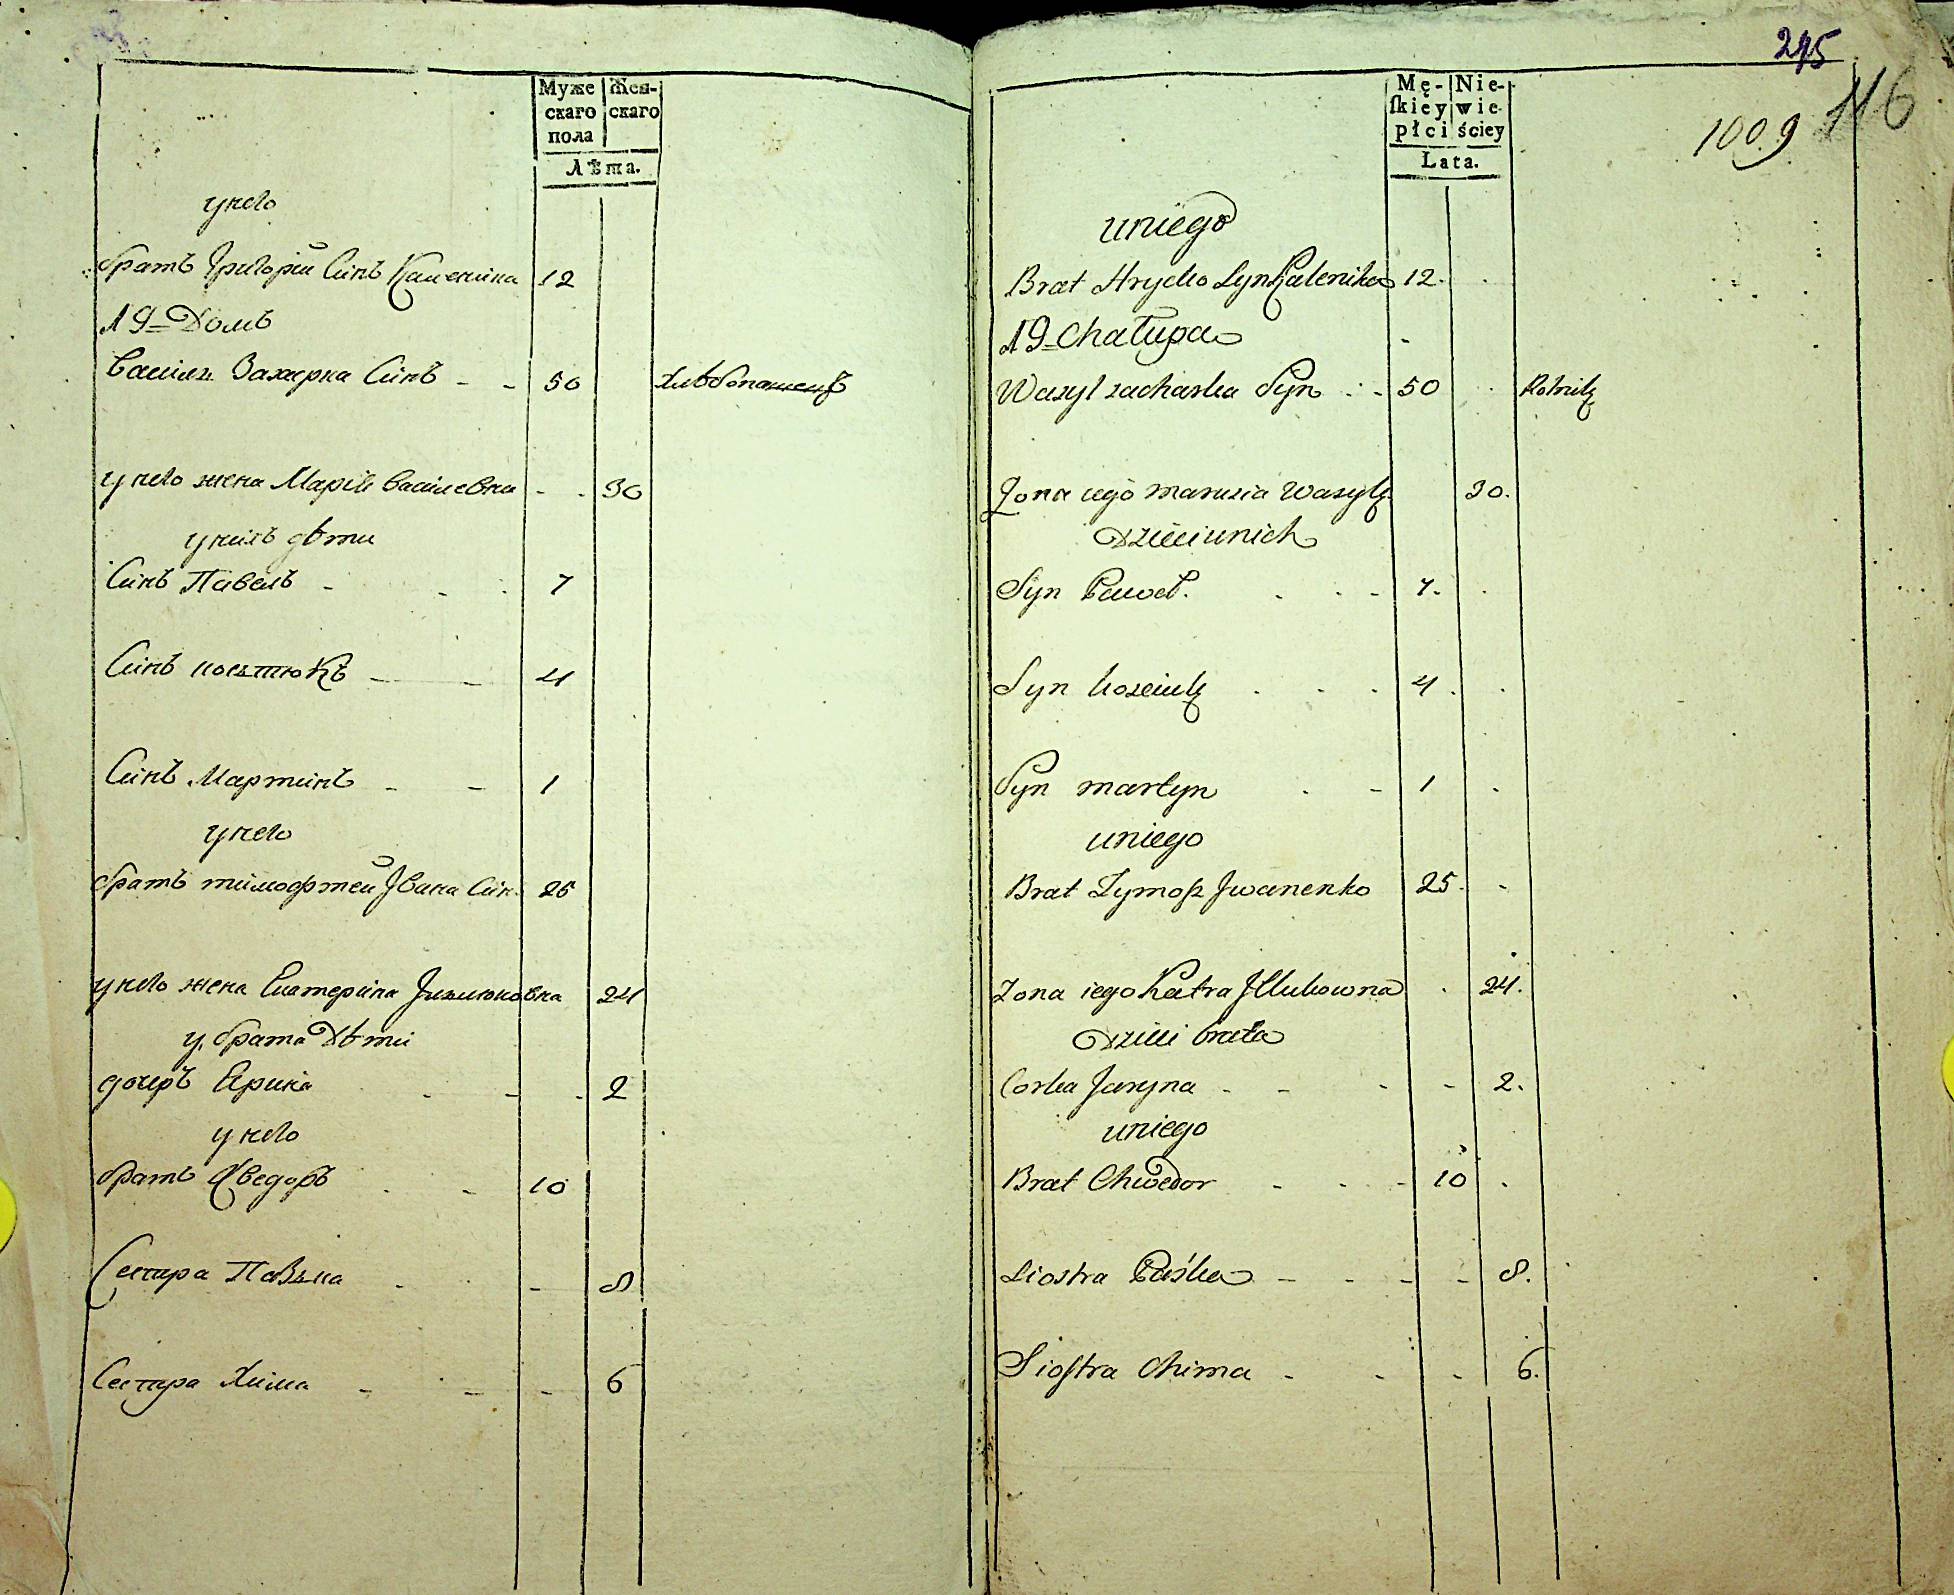 Муже
скаго
пола
Жен-
скаго
Лѣта.
у него
братъ Григорій Синъ Каленика 12
19 Домъ
Василь Захарка Синъ - - 50 хлѣбопашецъ
у него жена Марія Василевна - - 30
у нихъ дѣти
Синъ Павелъ - - - 7
Синъ костюкъ - - 4
Синъ Мартинъ - - 1
у него
братъ тимофтей Ивана Син. 25
у него жена Екатерина 24
у брата Дѣти
дочерь Ярина - - - 2
у него
братъ Хведоръ - - 10
Сестра Павька - - 8
Сестра Хима - - - 6
245
116
1009
Mę-
skiey
płci
Nie-
wie-
ściey
Lata.
u niego
Brat Hrycko Syn Kalenika 12.
19 Chałupa
Wasyl zacharka Syn - - 50 Rolnik
Żona iego marusia Wasyl. 30.
Dzieci u nich
Syn Paweł. - - - 7.
Syn kosciuk - - - 4.
Syn martyn - - 1
u niego
Brat Tymosz Jwanenko 25.
Zona iego Katra 24.
Dzieci brata
Corka Jaryna - - - - 2.
u niego
Brat Chwedor - - - 10
Siostra Paśka - - - - 8.
Siostra Chima - - - 6.